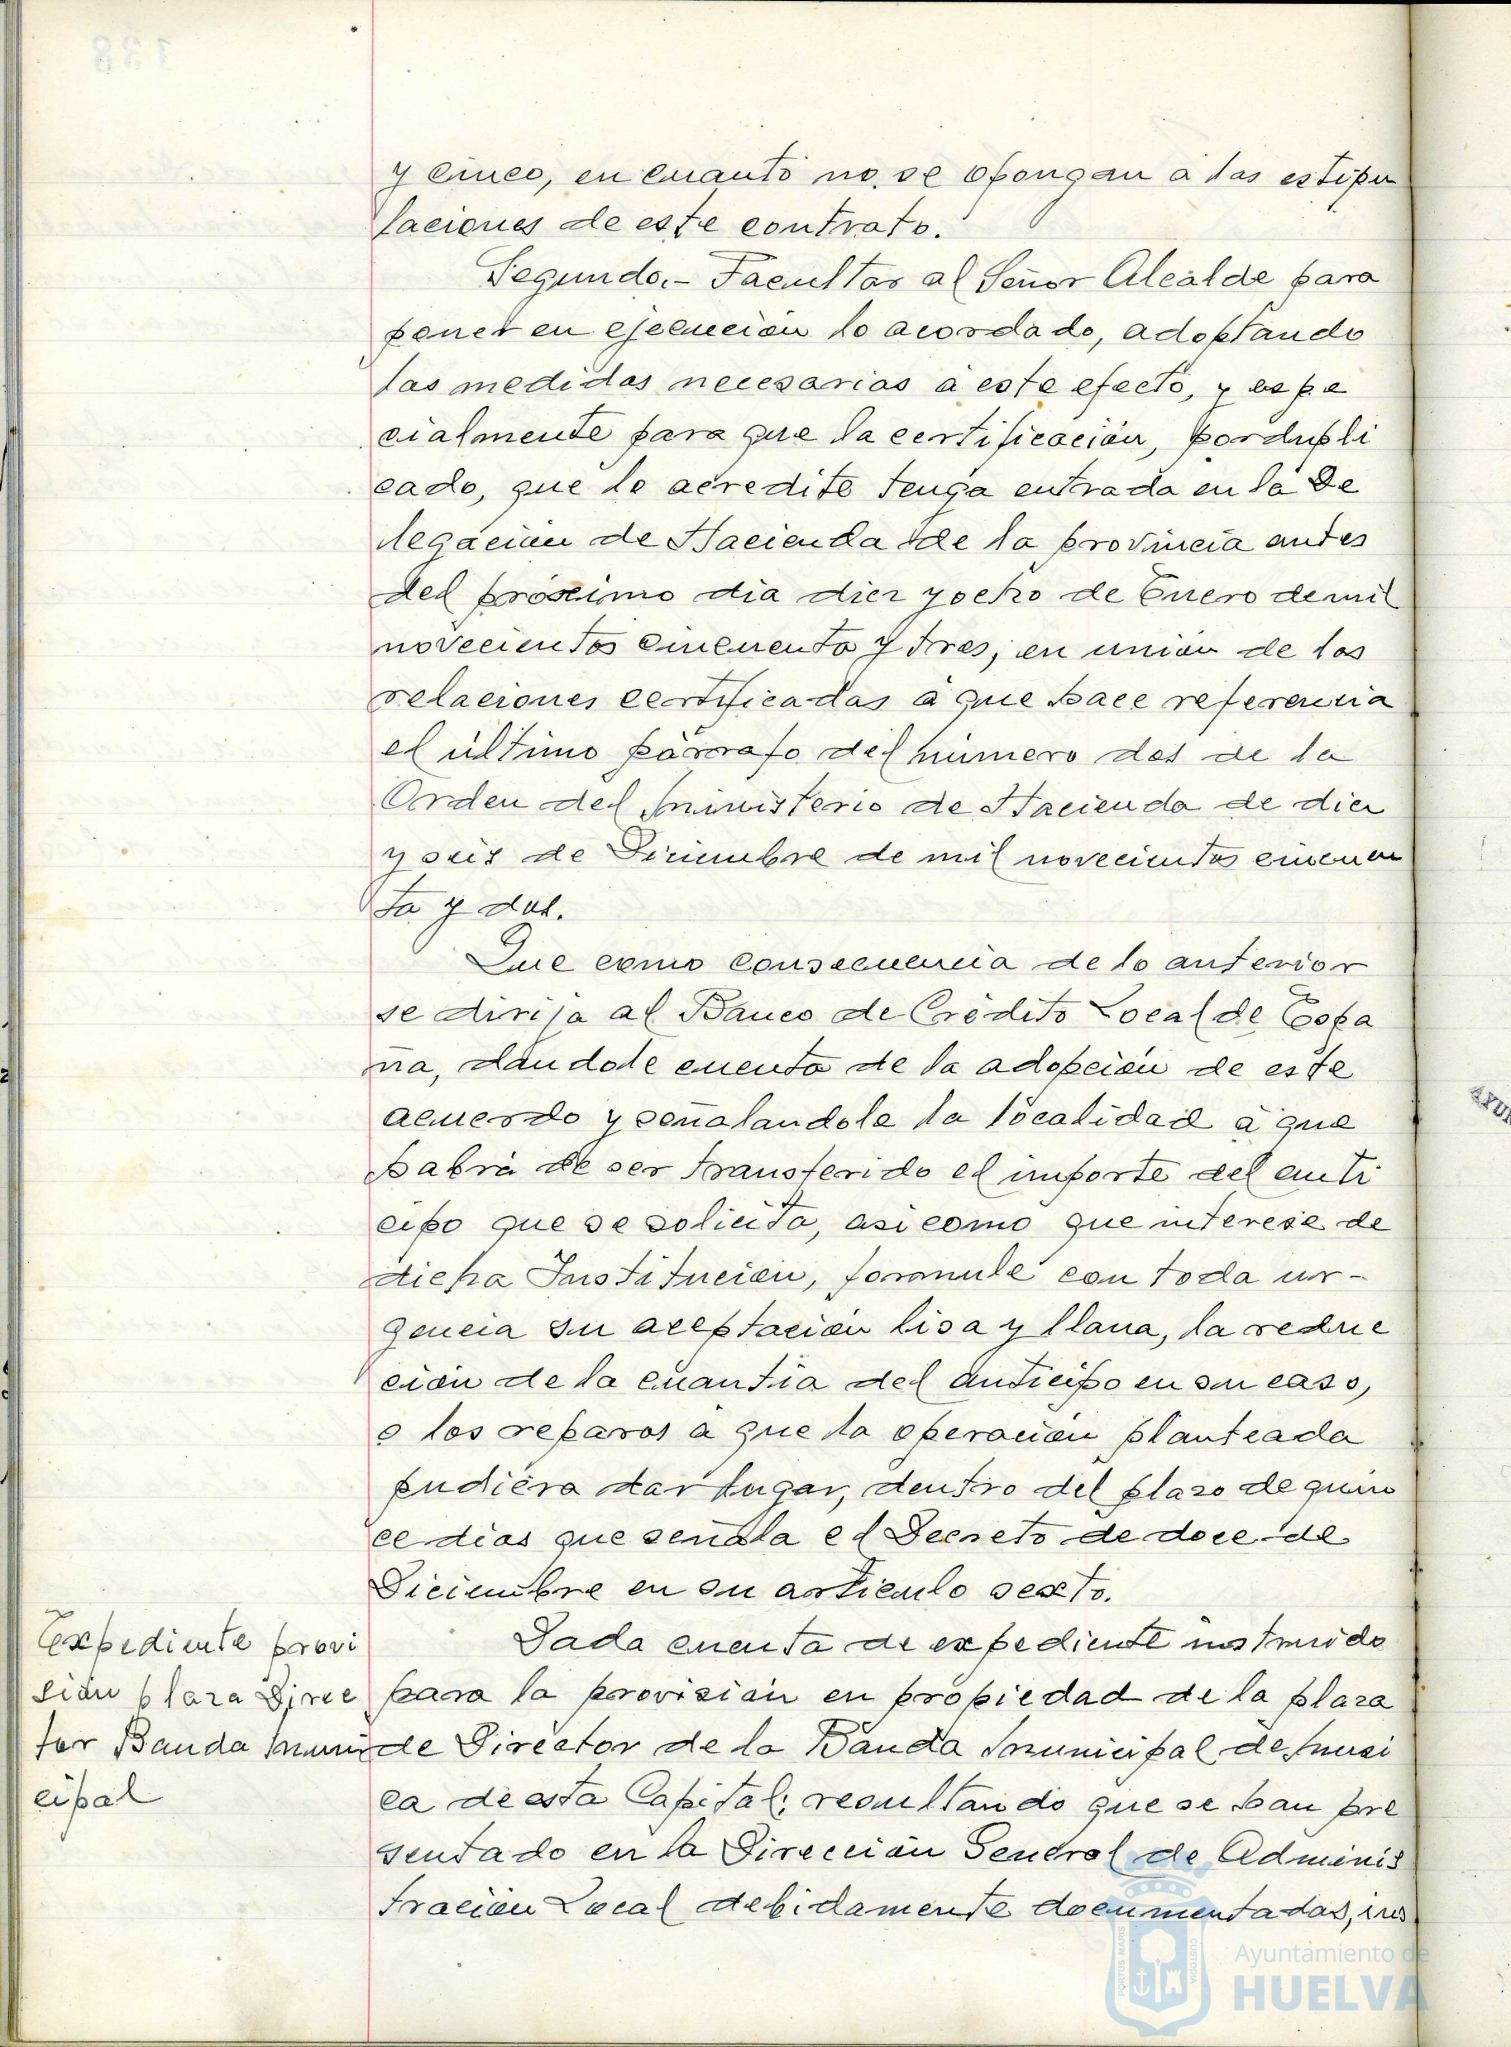 y cinco, en cuanto no se opongan a las estipu
laciones de este contrato.
Segundo.- Facultar al Señor Alcalde para
poner en ejecución lo acordado, adoptando
las medidas necesarias a este efecto, y espe
cialmente para que la certificación, por dupli
cado, que lo acredite tenga entrada en la De
legación de Hacienda de la provincia antes
del próximo dia diez y ocho de Enero de mil
novecientos cincuenta y tres, en unión de las
relaciones certificadas a que hace referencia
el último párrafo del número dos de la
Orden del Ministerio de Hacienda de diez
y seis de Diciembre de mil novecientos cincuen
ta y dos.
Que como consecuencia de lo anterior
se dirija al Banco de Crédito Local de Espa
ña, dandole cuenta de la adopción de este
acuerdo y señalandole la localidad a que
habrá de ser transferido el importe del anti
cipo que se solicita, asi como que interese de
dicha Institución, formule con toda ur-
gencia su aceptación lisa y llana, la reduc
ción de la cuantia del anticipo en su caso,
o los reparos a que la operación planteada
pudiera dar lugar, dentro del plazo de quin
ce dias que señala el Decreto de doce de
Diciembre en su articulo sexto.
Expediente provi
sión plaza Direc
tor Banda Muni
cipal
Dada cuenta de expediente instruido
para la provisión en propiedad de la plaza
de Director de la Banda Municipal de Musi
ca de esta Capital; resultando que se han pre
sentado en la Dirección General de Adminis
tración Local debidamente documentadas, ins
PORTUS MARIS
CUSTODIA
Ayuntamiento de
HUELVA
138